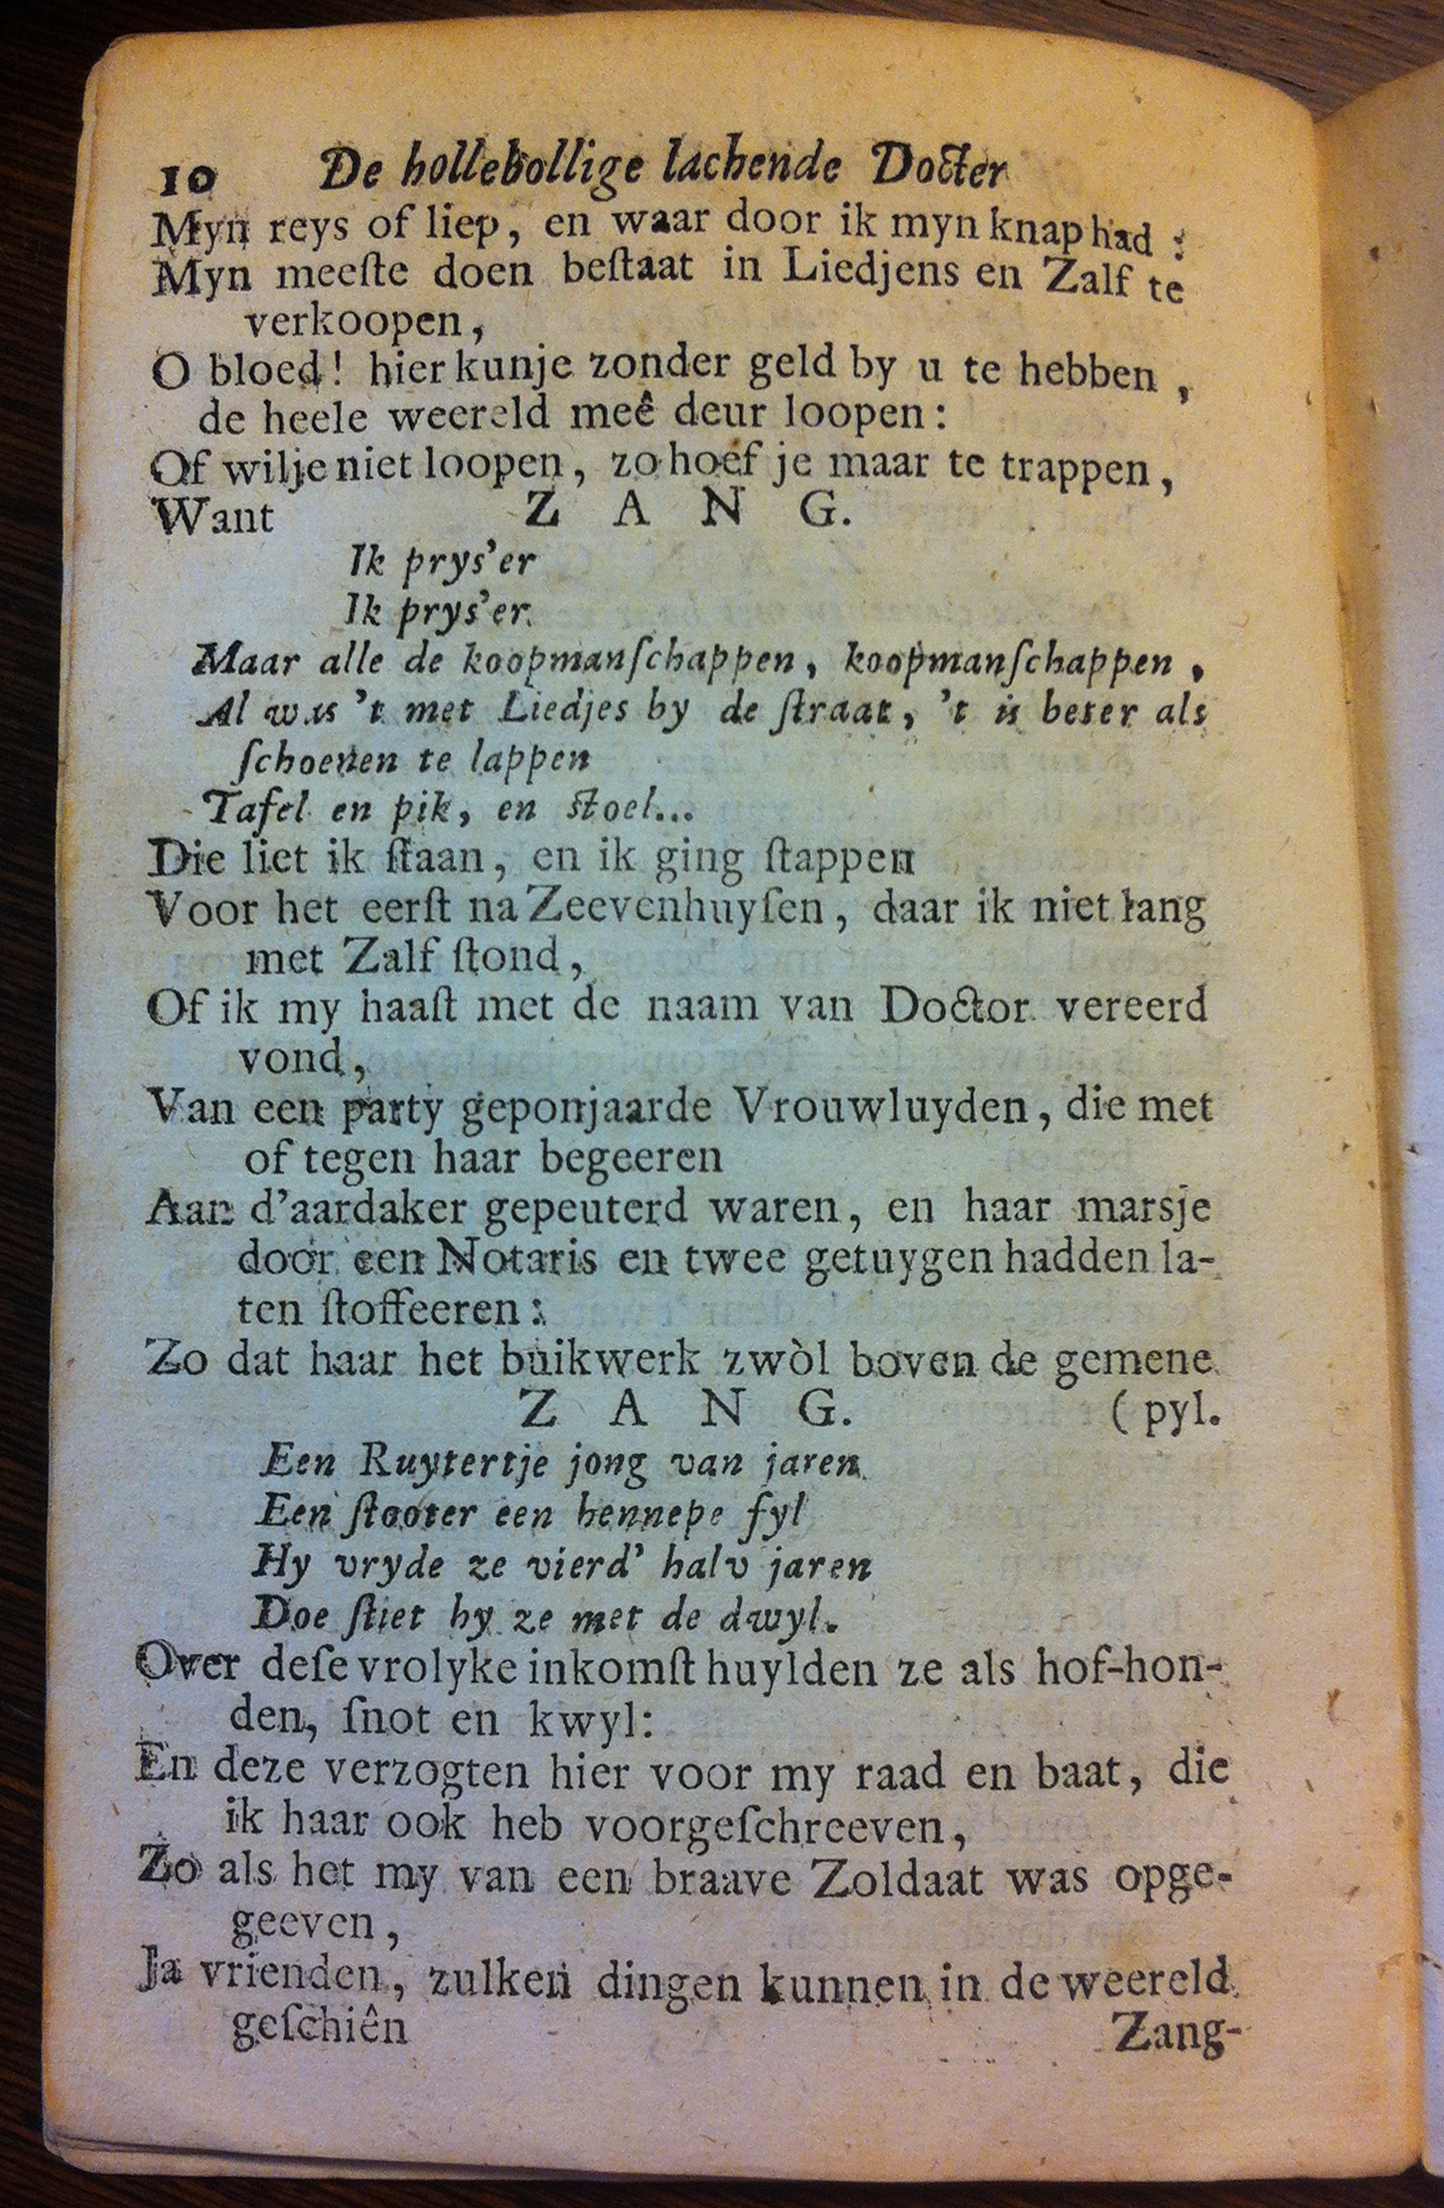 10 De hollebollige lachende Docter
Myn reys of liep, en waar door ik myn knap had:
Myn meeſte doen beſtaat in Liedjens en Zalf te
verkoopen,
O bloed! hier kunje zonder geld by u te hebben,
de heele weereld meê deur loopen:
Of wilje niet loopen, zo hoef je maar te trappen,
Want Z A N G.
Ik prys'er
Ik prys'er.
Maar alle de koopmanſchappen, koopmanſchappen,
Al was 't met Liedjes by de ſtraat, 't is beter als
ſchoenen te lappen
Tafel en pik, en ſtoel...
Die liet ik ſtaan, en ik ging ſtappen
Voor het eerſt na Zeevenhuyſen, daar ik niet lang
met Zalf ſtond,
Of ik my haaſt met de naam van Doctor vereerd
vond,
Van een party geponjaarde Vrouwluyden, die met
of tegen haar begeeren
Aan d'aardaker gepeuterd waren, en haar marsje
door een Notaris en twee getuygen hadden la-
ten ſtoffeeren:
Zo dat haar het buikwerk zwòl boven de gemene
Z A N G. (pyl.
Een Ruytertje jong van jaren
Een ſtooter een hennepe ſyl
Hy vryde ze vierd' halv jaren
Doe ſtiet hy ze met de dwyl.
Over deſe vrolyke inkomſt huylden ze als hof-hon-
den, ſnot en kwyl:
En deze verzogten hier voor my raad en baat, die
ik haar ook heb voorgeſchreeven,
Zo als het my van een braave Zoldaat was opge-
geeven,
Ja vrienden, zulken dingen kunnen in de weereld
geſchiên Zang-